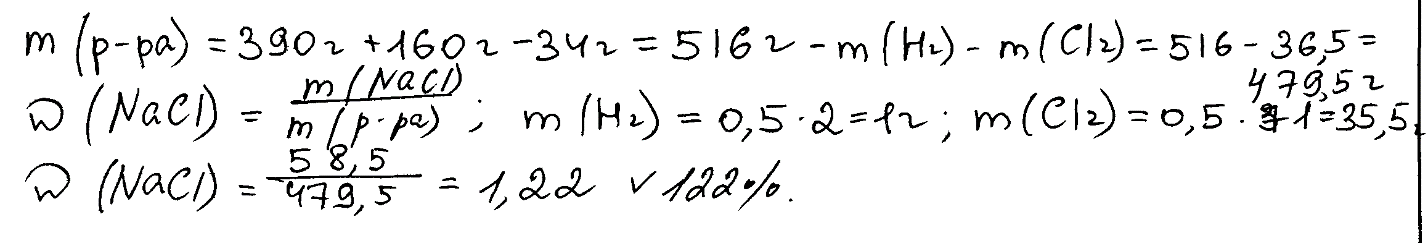 m (р-ра) = 390г + 160г - 34г = 516г - m (H2) - m (Cl2) = 516 - 36,5 = 479,5г
ω (NaCl) = m (NaCl) / m (р-ра) ; m (H2) = 0,5 · 2 = 1г ; m (Cl2) = 0,5 · 71 = 35,5г
ω (NaCl) = 58,5 / 479,5 = 1,22 v 122%.